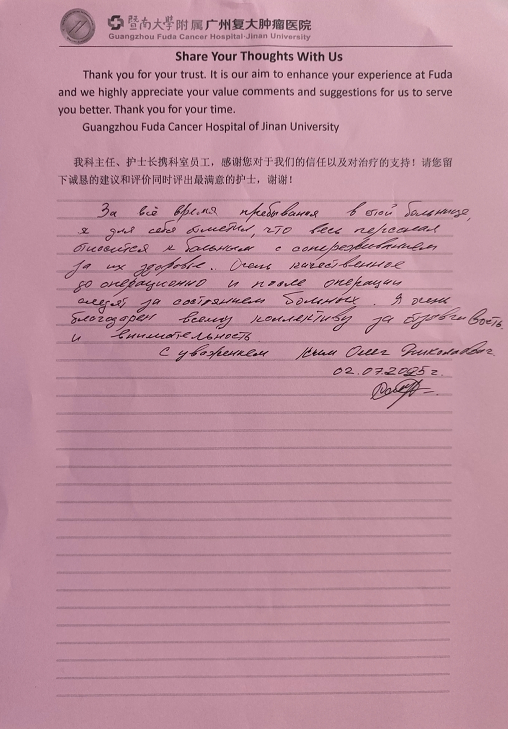 暨南大學附属广州复大肿瘤医院
Guangzhou Fuda Cancer Hospital·Jinan University
Share Your Thoughts With Us
Thank you for your trust. It is our aim to enhance your experience at Fuda
and we highly appreciate your value comments and suggestions for us to serve
you better. Thank you for your time.
Guangzhou Fuda Cancer Hospital of Jinan University
我科主任、护士长携科室员工，感谢您对于我们的信任以及对治疗的支持！请您留
下诚恳的建议和评价同时评出最满意的护士，谢谢！
За всё время пребывания в этой больнице,
я для себя отметил, что весь персонал
относится к больным с сопереживанием
за их здоровье. Очень качественное
до операционно и после операции
следят за состоянием больных. Я очень
благодарен всему коллективу за
и внимательность
С уважением Ким Олег Николаевич
02.07.2025г.